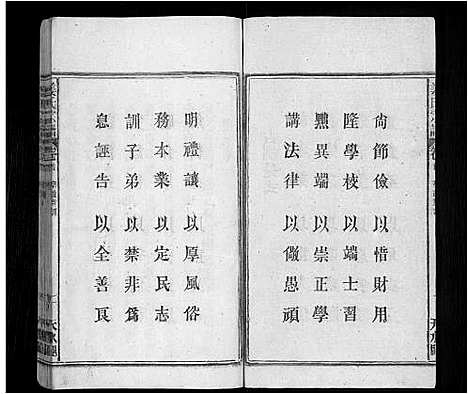 尙節儉 以惜財用
隆學校 以端士習
黜異端 以崇正學
講法律 以儆愚頑
明禮讓 以厚風俗
務本業 以定民志
訓子弟 以禁非爲
息誣告 以全善良